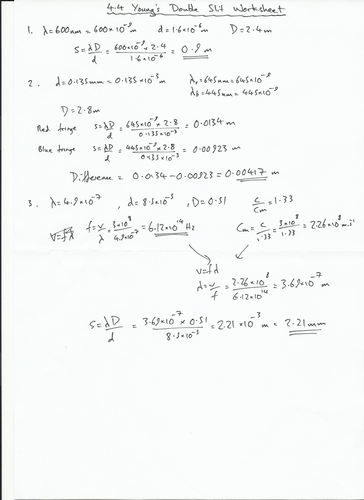 4.4 Young's Double Slit Worksheet
1. λ=600nm = 600×10⁻⁹ m d=1.6×10⁻⁶ m D=2.4m
S = λD/d = 600×10⁻⁹ × 2.4 / 1.6×10⁻⁶ = 0.9 m
2. d=0.135mm = 0.135×10⁻³ m λr = 645nm = 645×10⁻⁹
λb = 445nm = 445×10⁻⁹
D = 2.8m
Red fringe S = λD/d = 645×10⁻⁹ × 2.8 / 0.135×10⁻³ = 0.0134 m
Blue fringe S = λD/d = 445×10⁻⁹ × 2.8 / 0.135×10⁻³ = 0.00923 m
Difference = 0.0134 − 0.00923 = 0.00417 m
3. λ = 4.9×10⁻⁷, d = 8.5×10⁻⁵, D = 0.51 c/cm = 1.33
v=fλ f = v/λ = 3×10⁸ / 4.9×10⁻⁷ = 6.12×10¹⁴ Hz Cm = c/1.33 = 3×10⁸ / 1.33 = 2.26×10⁸ m.s⁻¹
v=fλ
λ = v/f = 2.26×10⁸ / 6.12×10¹⁴ = 3.69×10⁻⁷ m
S = λD/d = 3.69×10⁻⁷ × 0.51 / 8.5×10⁻⁵ = 2.21×10⁻³ m = 2.21mm